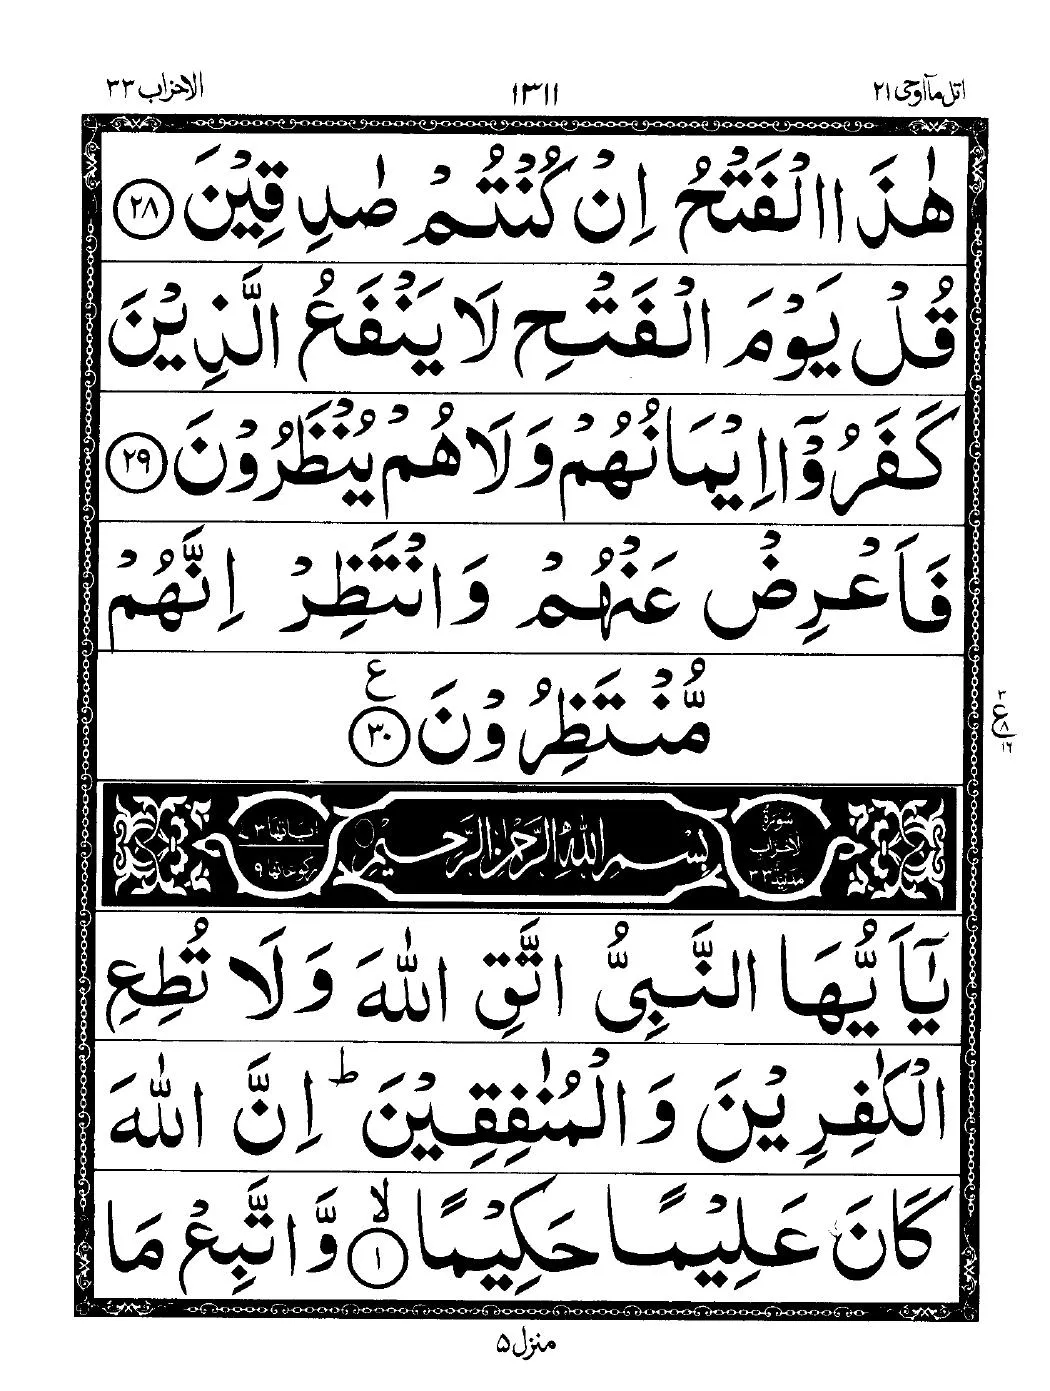 اتل مآ اوحی ۲۱
۱۳۱۱
الاحزاب ۳۳
هٰذَا الْفَتْحُ اِنْ كُنْتُمْ صٰدِقِيْنَ ۲۸
قُلْ يَوْمَ الْفَتْحِ لَا يَنْفَعُ الَّذِيْنَ
كَفَرُوْٓا اِيْمَانُهُمْ وَلَا هُمْ يُنْظَرُوْنَ ۲۹
فَاَعْرِضْ عَنْهُمْ وَانْتَظِرْ اِنَّهُمْ
مُّنْتَظِرُوْنَ ۳۰ ع
۲
ع
۸
۱۶
سُوْرَةُ الاحزاب مدنية ۳۳
بِسْمِ اللّٰهِ الرَّحْمٰنِ الرَّحِيْمِ
ركوعاتها ۹
يٰٓاَيُّهَا النَّبِىُّ اتَّقِ اللّٰهَ وَلَا تُطِعِ
الْكٰفِرِيْنَ وَالْمُنٰفِقِيْنَ ؕ اِنَّ اللّٰهَ
كَانَ عَلِيْمًا حَكِيْمًا ۱ ۙ وَّاتَّبِعْ مَا
منزل ۵